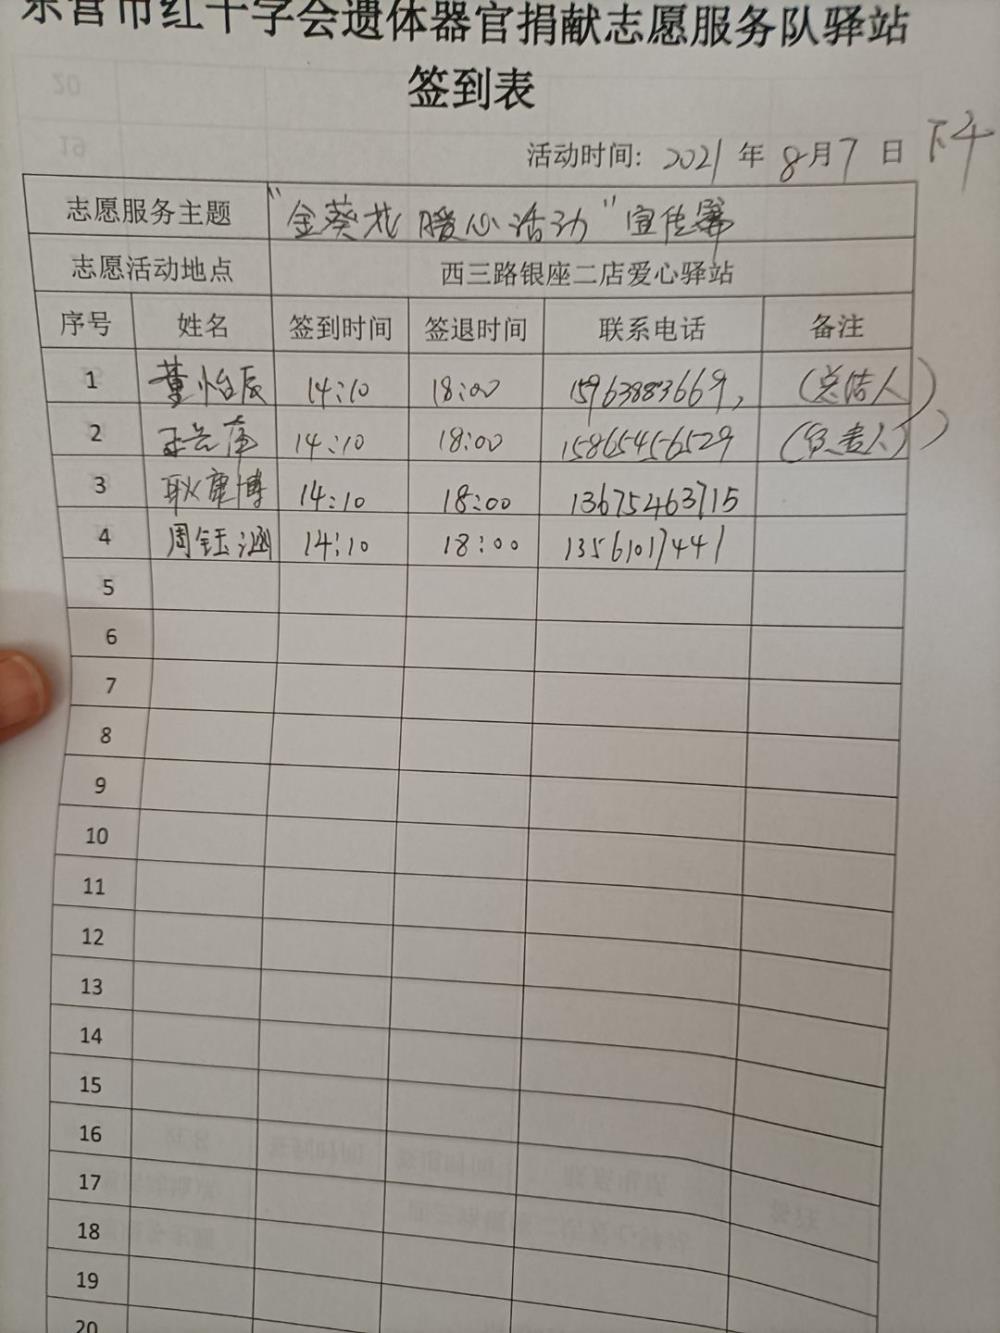 东营市红十字会遗体器官捐献志愿服务队驿站
签到表
活动时间: 2021 年 8月7 日 下午
志愿服务主题 "金葵花 暖心活动"宣传
志愿活动地点 西三路银座二店爱心驿站
序号 姓名 签到时间 签退时间 联系电话 备注
1 董怡辰 14:10 18:00 15963883669, (总结人)
2 14:10 18:00 15865456529 (负责人)
3 耿康博 14:10 18:00 13675463715
4 周钰涵 14:10 18:00 13561017441
5
6
7
8
9
10
11
12
13
14
15
16
17
18
19
20